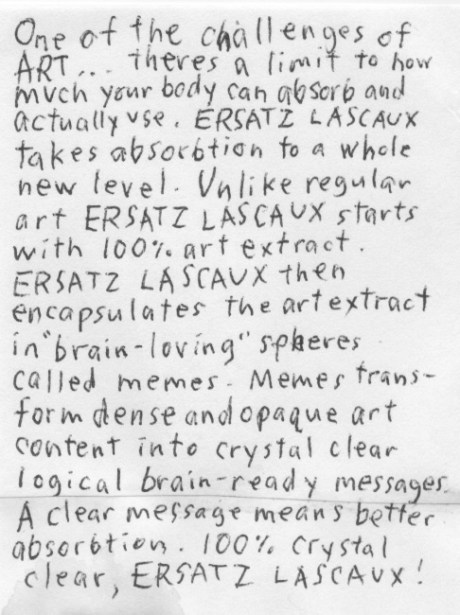 One of the challenges of
ART... theres a limit to how
much your body can absorb and
actually use. ERSATZ LASCAUX
takes absorbtion to a whole
new level. Unlike regular
art ERSATZ LASCAUX starts
with 100% art extract.
ERSATZ LASCAUX then
encapsulates the art extract
in "brain-loving" spheres
called memes. Memes trans-
form dense and opaque art
content into crystal clear
logical brain-ready messages.
A clear message means better
absorbtion. 100% Crystal
clear, ERSATZ LASCAUX!